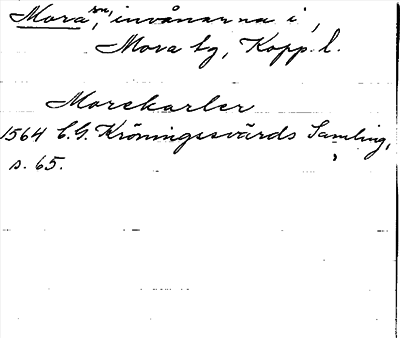 Mora, sn, invånarna i,
Mora by, Kopp. l.
Morekarler
1564 C.G. Kröningssvärds Samling,
s. 65.